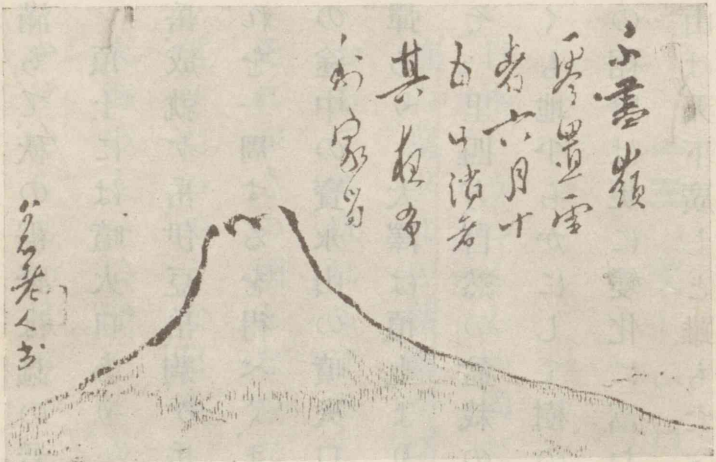 不盡嶺
零置雪
者六月十
五日消者
其夜布
利家
老人書